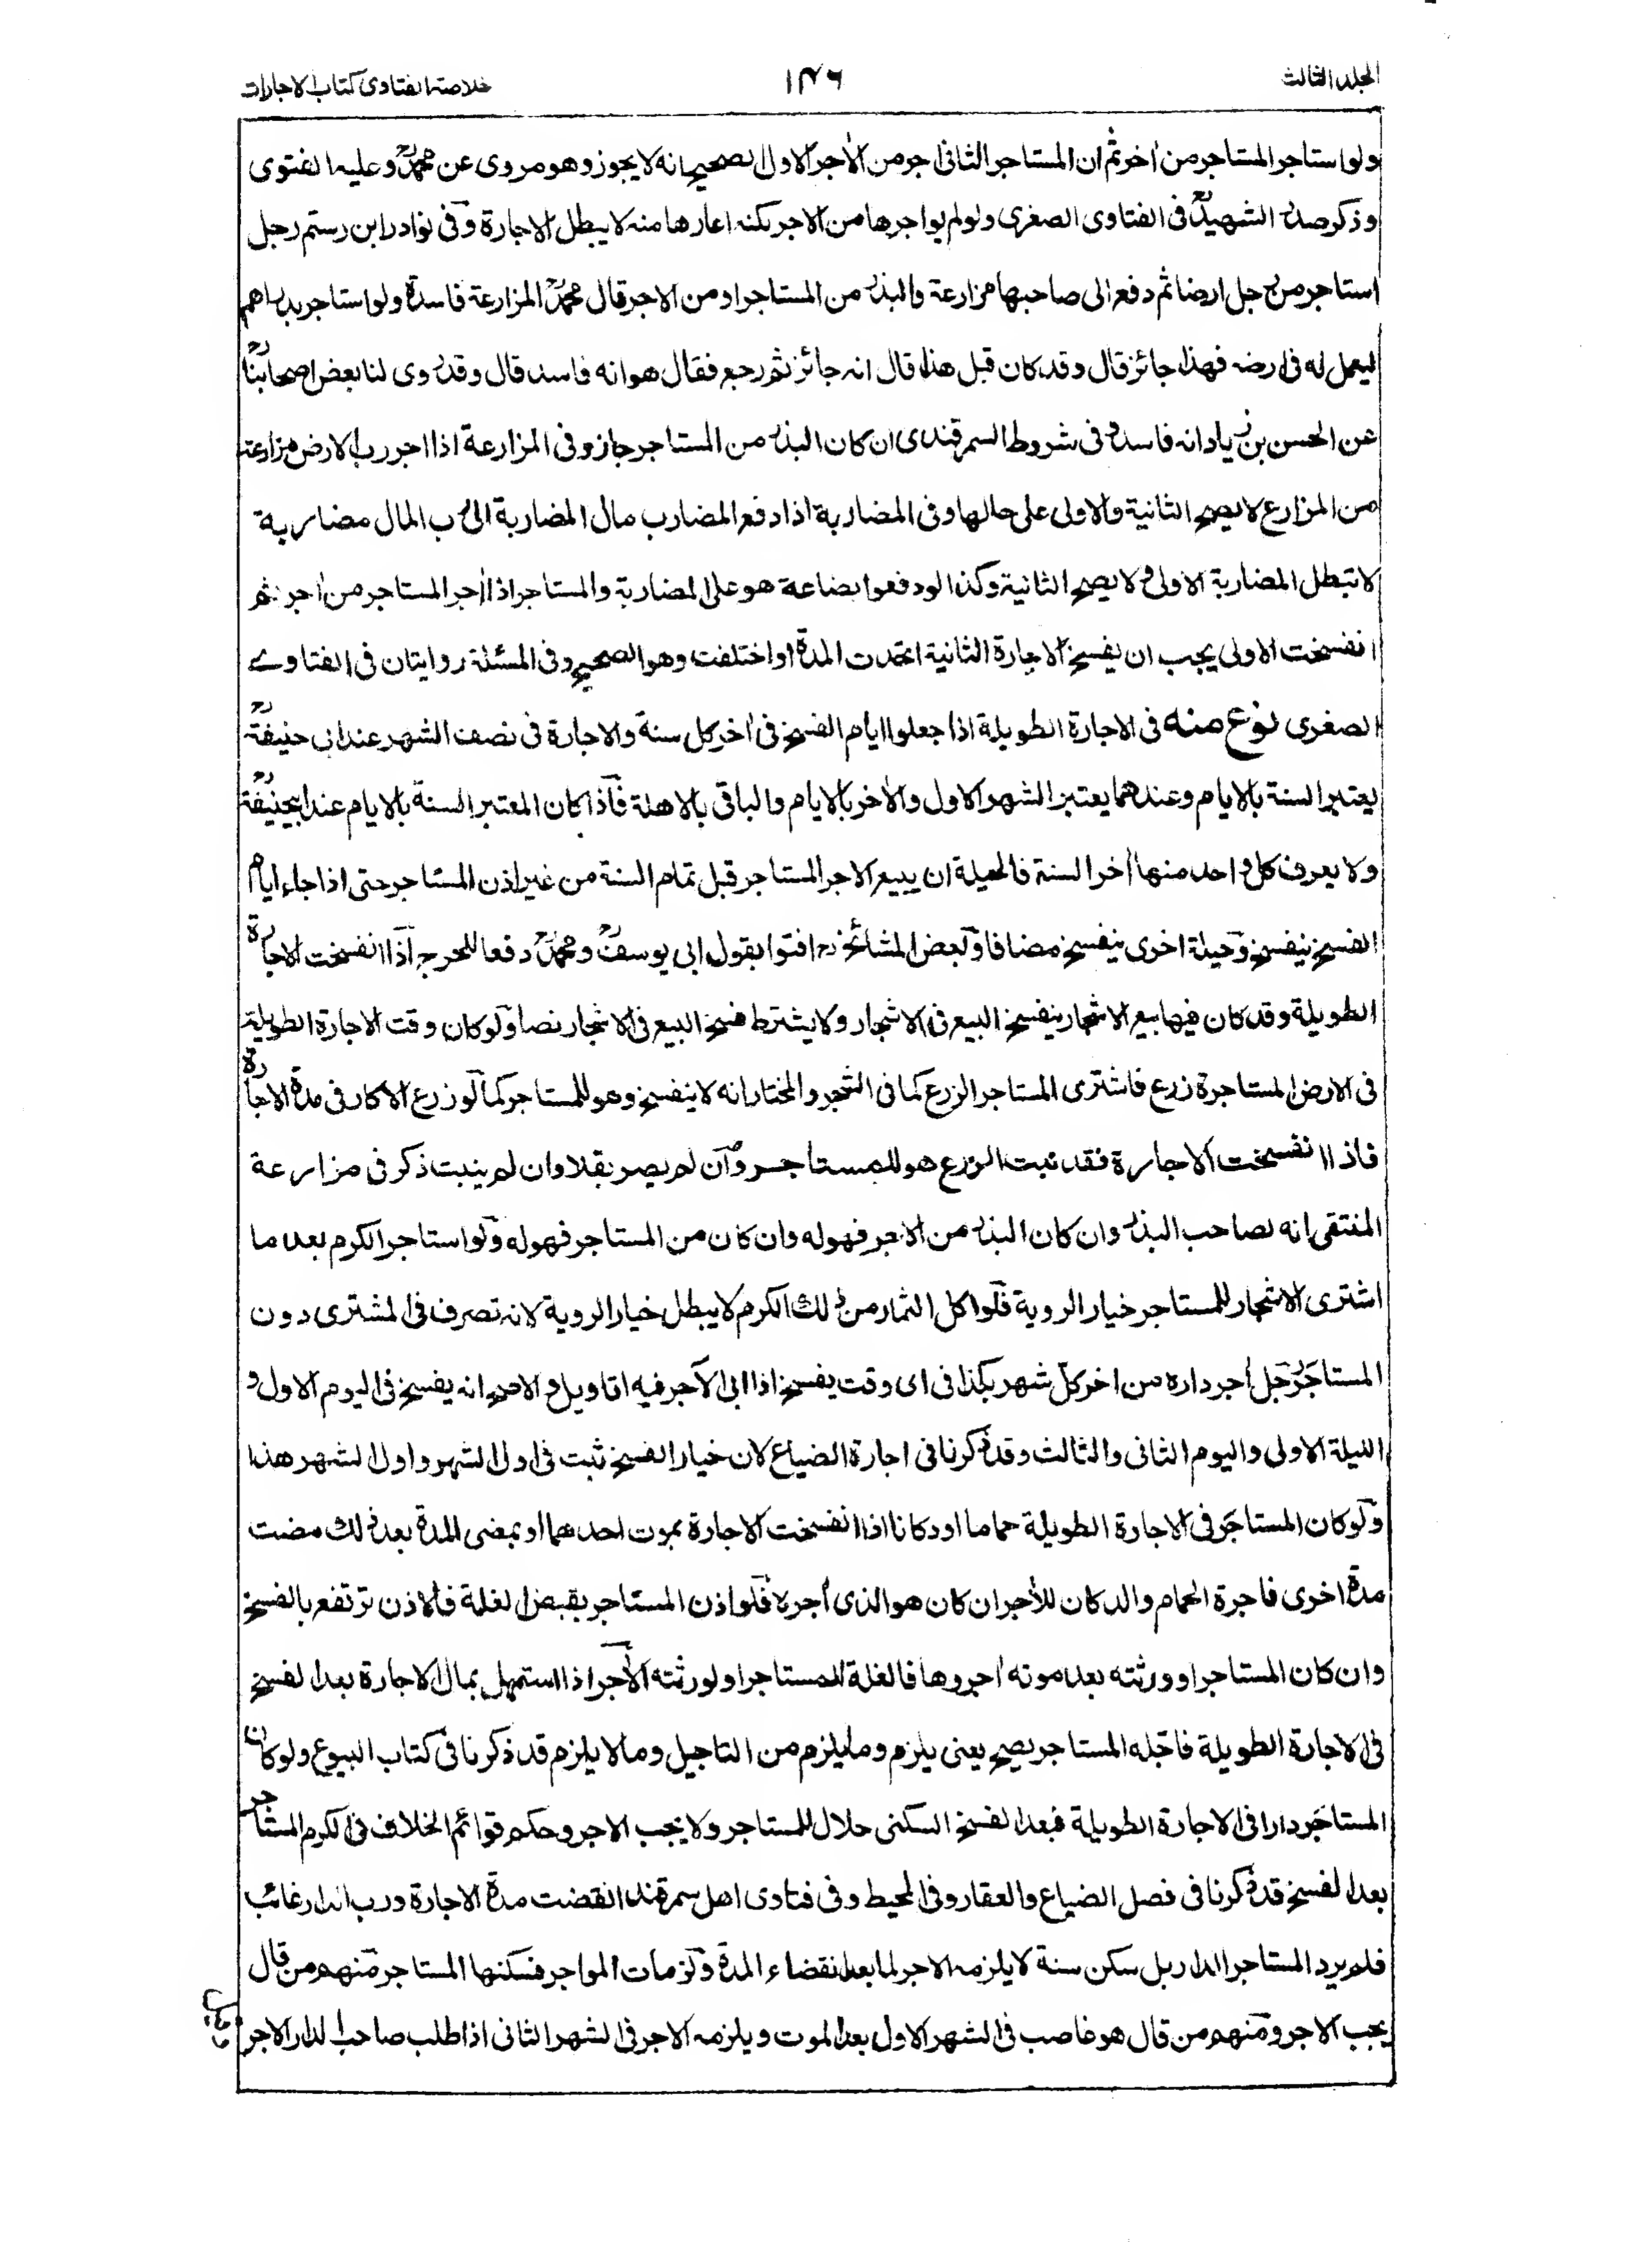 المجلد الثالث
۱۴۶
خلاصة الفتاوى كتاب الاجارات
ولو استاجر المستاجر من اٰخر ثم ان المستاجر الثانى اجر من الاٰجر الاول الصحيح انه لا يجوز وهو مروى عن محمدؒ وعليه الفتوى
وذكر صدر الشهيدؒ فى الفتاوى الصغرى ولو لم يواجرها من الاجر لكنه اعارها منه لا يبطل الاجارة وفى نوادر ابن رستم رجل
استاجر من رجل ارضا ثم دفع الى صاحبها مزارعة والبذر من المستاجر او من الاجر قال محمدؒ المزارعة فاسدة ولو استاجر بدراهم
ليعمل له فى ارضه فهذا جائز قال وقد كان قبل هذا قال انه جائز ثم رجع فقال هو انه فاسد قال وقد روى لنا بعض اصحابناؒ
عن الحسن بن زياد انه فاسد وفى شروط السمرقندى ان كان البذر من المستاجر جاز وفى المزارعة اذا اجر رب الارض مزارعة
من المزارع لا يصح الثانية والاولى على حالها وفى المضاربة اذا دفع المضارب مال المضاربة الى رب المال مضاربة
لا تبطل المضاربة الاولى ولا يصح الثانية وكذا لو دفعوا بضاعة هو على المضاربة والمستاجر اذا اٰجر المستاجر من اٰجر ثم
انفسخت الاولى يجب ان يفسخ الاجارة الثانية اتحدت المدة او اختلفت وهو الصحيح وفى المسئلة روايتان فى الفتاوے
الصغرى نوع منه فى الاجارة الطويلة اذا جعلوا ايام الفسخ فى اٰخر كل سنة والاجارة فى نصف الشهر عند ابى حنيفةؒ
يعتبر السنة بالايام وعندهما يعتبر الشهر الاول والاٰخر بالايام والباقى بالاهلة فاذا كان المعتبر السنة بالايام عند ابيحنيفةؒ
ولا يعرف كل واحد منها اٰخر السنة فالحيلة ان يبيع الاجر المستاجر قبل تمام السنة من غير اذن المستاجر حتى اذا جاء ايام
الفسخ ينفسخ وحيلة اخرى ينفسخ مضافا وبعض المشائخؒ افتوا بقول ابى يوسفؒ ومحمدؒ دفعا للحرج اذا انفسخت الاجارة
الطويلة وقد كان فيها بيع الاشجار ينفسخ البيع فى الاشجار ولا يشترط فسخ البيع فى الاشجار نصا ولو كان وقت الاجارة الطويلة
فى الارض المستاجرة زرع فاشترى المستاجر الزرع كما فى الشجر والمختار انه لا ينفسخ وهو للمستاجر كما لو زرع الاكار فى مدة الاجارة
فاذا انفسخت الاجارة فقد نبت الزرع هو للمستاجر وان لم يصر بقلا وان لم ينبت ذكر فى مزارعة
المنتقى انه لصاحب البذر وان كان البذر من الاجر فهو له وان كان من المستاجر فهو له ولو استاجر الكرم بعد ما
اشترى الاشجار للمستاجر خيار الروية فلو اكل الثمار من ذلك الكرم لا يبطل خيار الروية لانه تصرف فى المشترى دون
المستاجَر رجل اٰجر داره من اٰخر كل شهر بكذا فى اى وقت يفسخ اذا ابى الاٰجر فيه اقاويل والاصح انه يفسخ فى اليوم الاول و
الليلة الاولى واليوم الثانى والثالث وقد ذكرنا فى اجارة الضياع لان خيار الفسخ ثبت فى اول الشهر واول الشهر هذا
ولو كان المستاجَر فى الاجارة الطويلة حماما او دكانا اذا انفسخت الاجارة بموت احدهما او بمضى المدة بعد ذلك مضت
مدة اخرى فاجرة الحمام والدكان للاٰجر ان كان هو الذى اٰجره فلو اذن المستاجر بقبض الغلة فالاذن ترتفع بالفسخ
وان كان المستاجر او ورثته بعد موته اٰجروها فالغلة للمستاجر او لورثته الاٰجر اذا استمهل بمال الاجارة بعد الفسخ
فى الاجارة الطويلة فاجّله المستاجر يصح يعنى يلزم وما يلزم من التاجيل وما لا يلزم قد ذكرنا فى كتاب البيوع ولو كان
المستاجَر دارا فى الاجارة الطويلة فبعد الفسخ السكنى حلال للمستاجر ولا يجب الاجر وحكم قوائم الخلاف فى الكرم المستاجر
بعد الفسخ قد ذكرنا فى فصل الضياع والعقار وفى المحيط وفى فتاوى اهل سمرقند انقضت مدة الاجارة ورب الدار غائب
فلم يرد المستاجر الدار بل سكن سنة لا يلزمه الاجر لما بعد انقضاء المدة وكذا مات المواجر فسكنها المستاجر منهم من قال
يجب الاجر ومنهم من قال هو غاصب فى الشهر الاول بعد الموت ويلزمه الاجر فى الشهر الثانى اذا طلب صاحب الدار الاجر